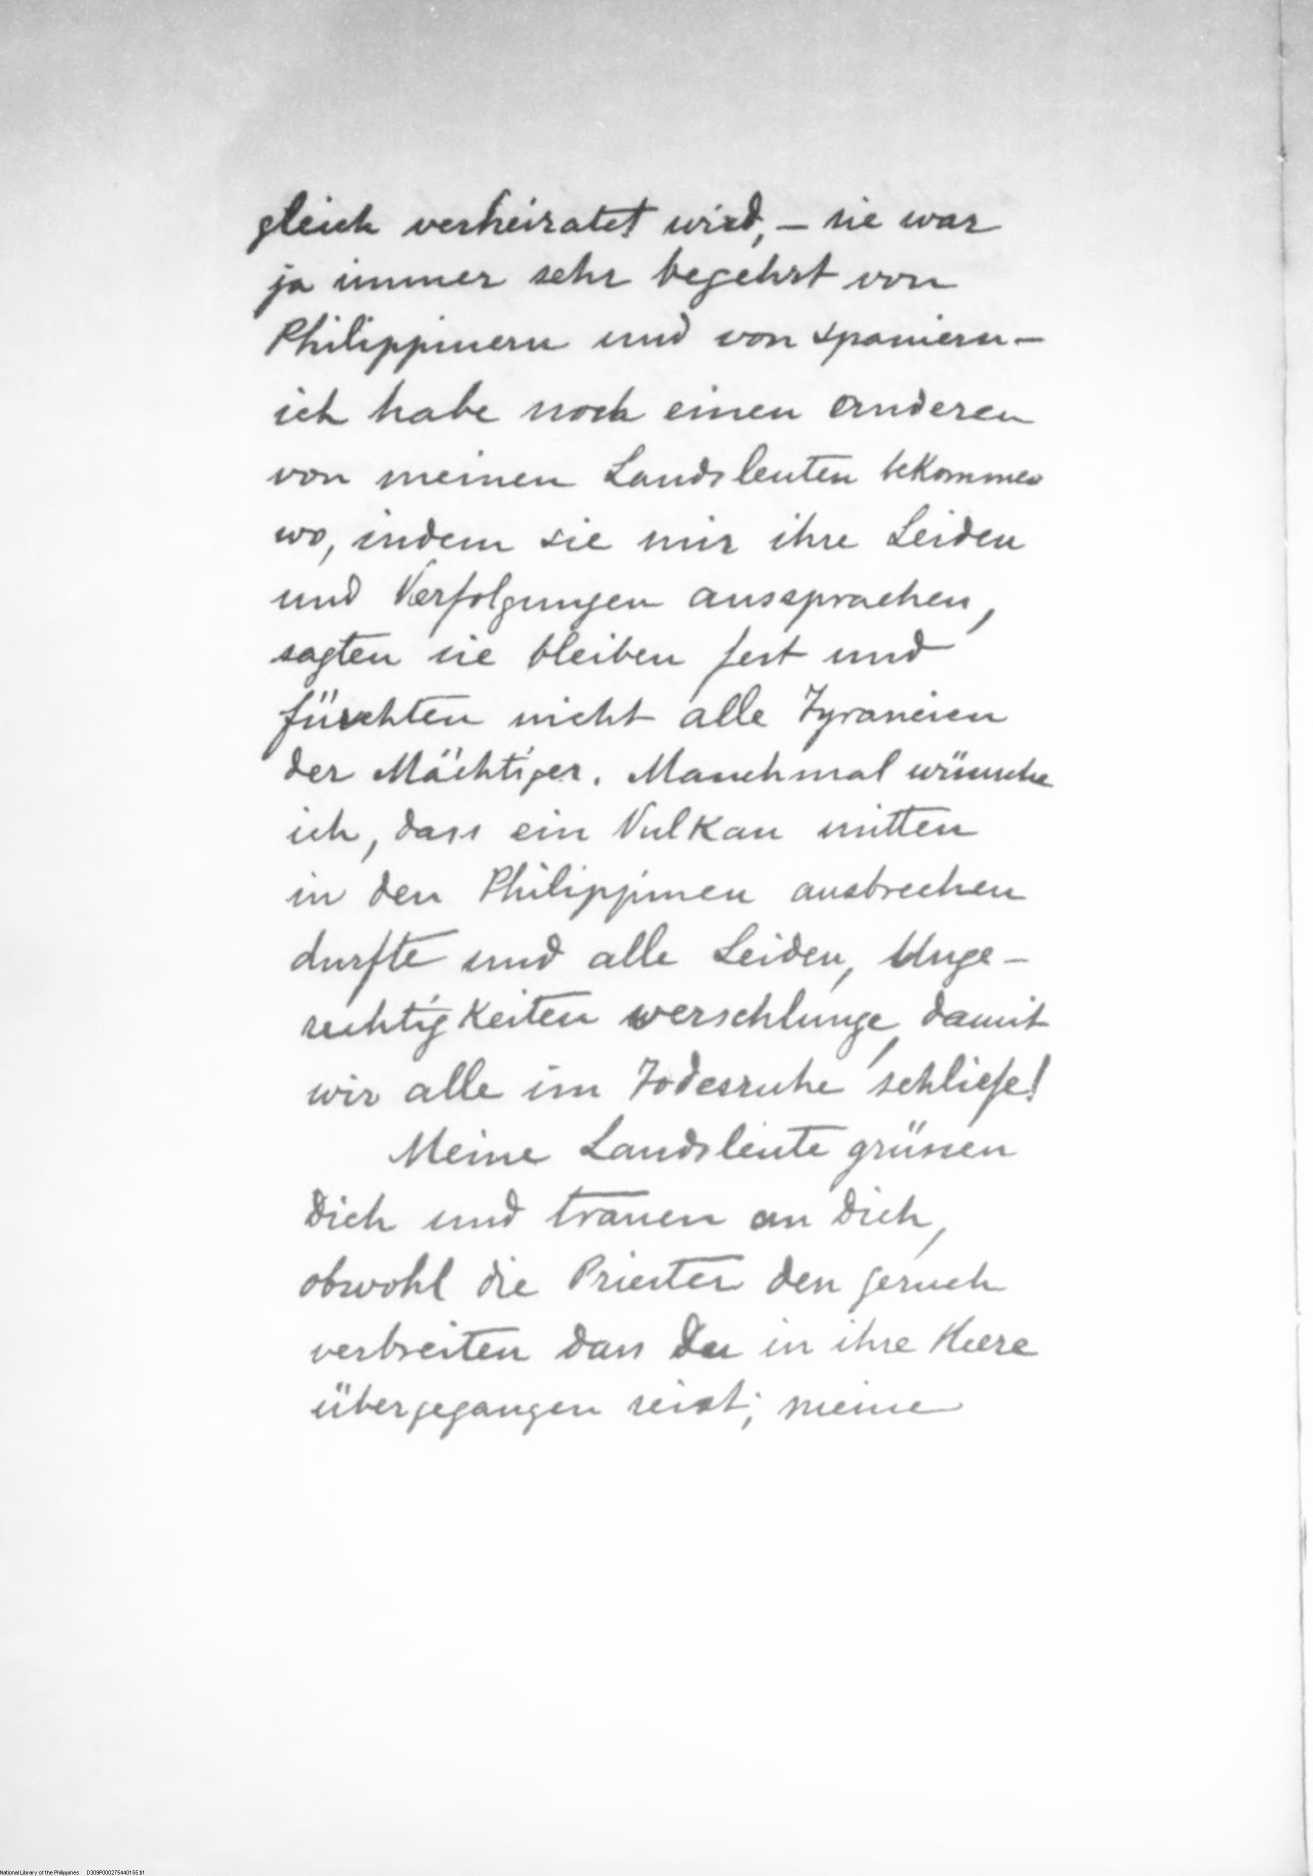 gleich verheiratet wird, – sie war
ja immer sehr begehrt von
Philippinern und von Spaniern –
ich habe noch einen anderen
von meinen Landsleuten bekommen
wo, indem sie mir ihre Leiden
und Verfolgungen aussprachen,
sagten sie bleiben fest und
fürchten nicht alle Tyraneien
der Mächtiger. Manchmal wünsche
ich, dass ein Vulkan mitten
in den Philippinen ausbrechen
durfte und alle Leiden, Unge-
rechtigkeiten verschlunge, damit
wir alle im Todesruhe schliefe!
Meine Landsleute grüssen
Dich und trauen an Dich,
obwohl die Priester den geruch
verbreiten dass Du in ihre Heere
übergegangen seist; meine
National Library of the Philippines